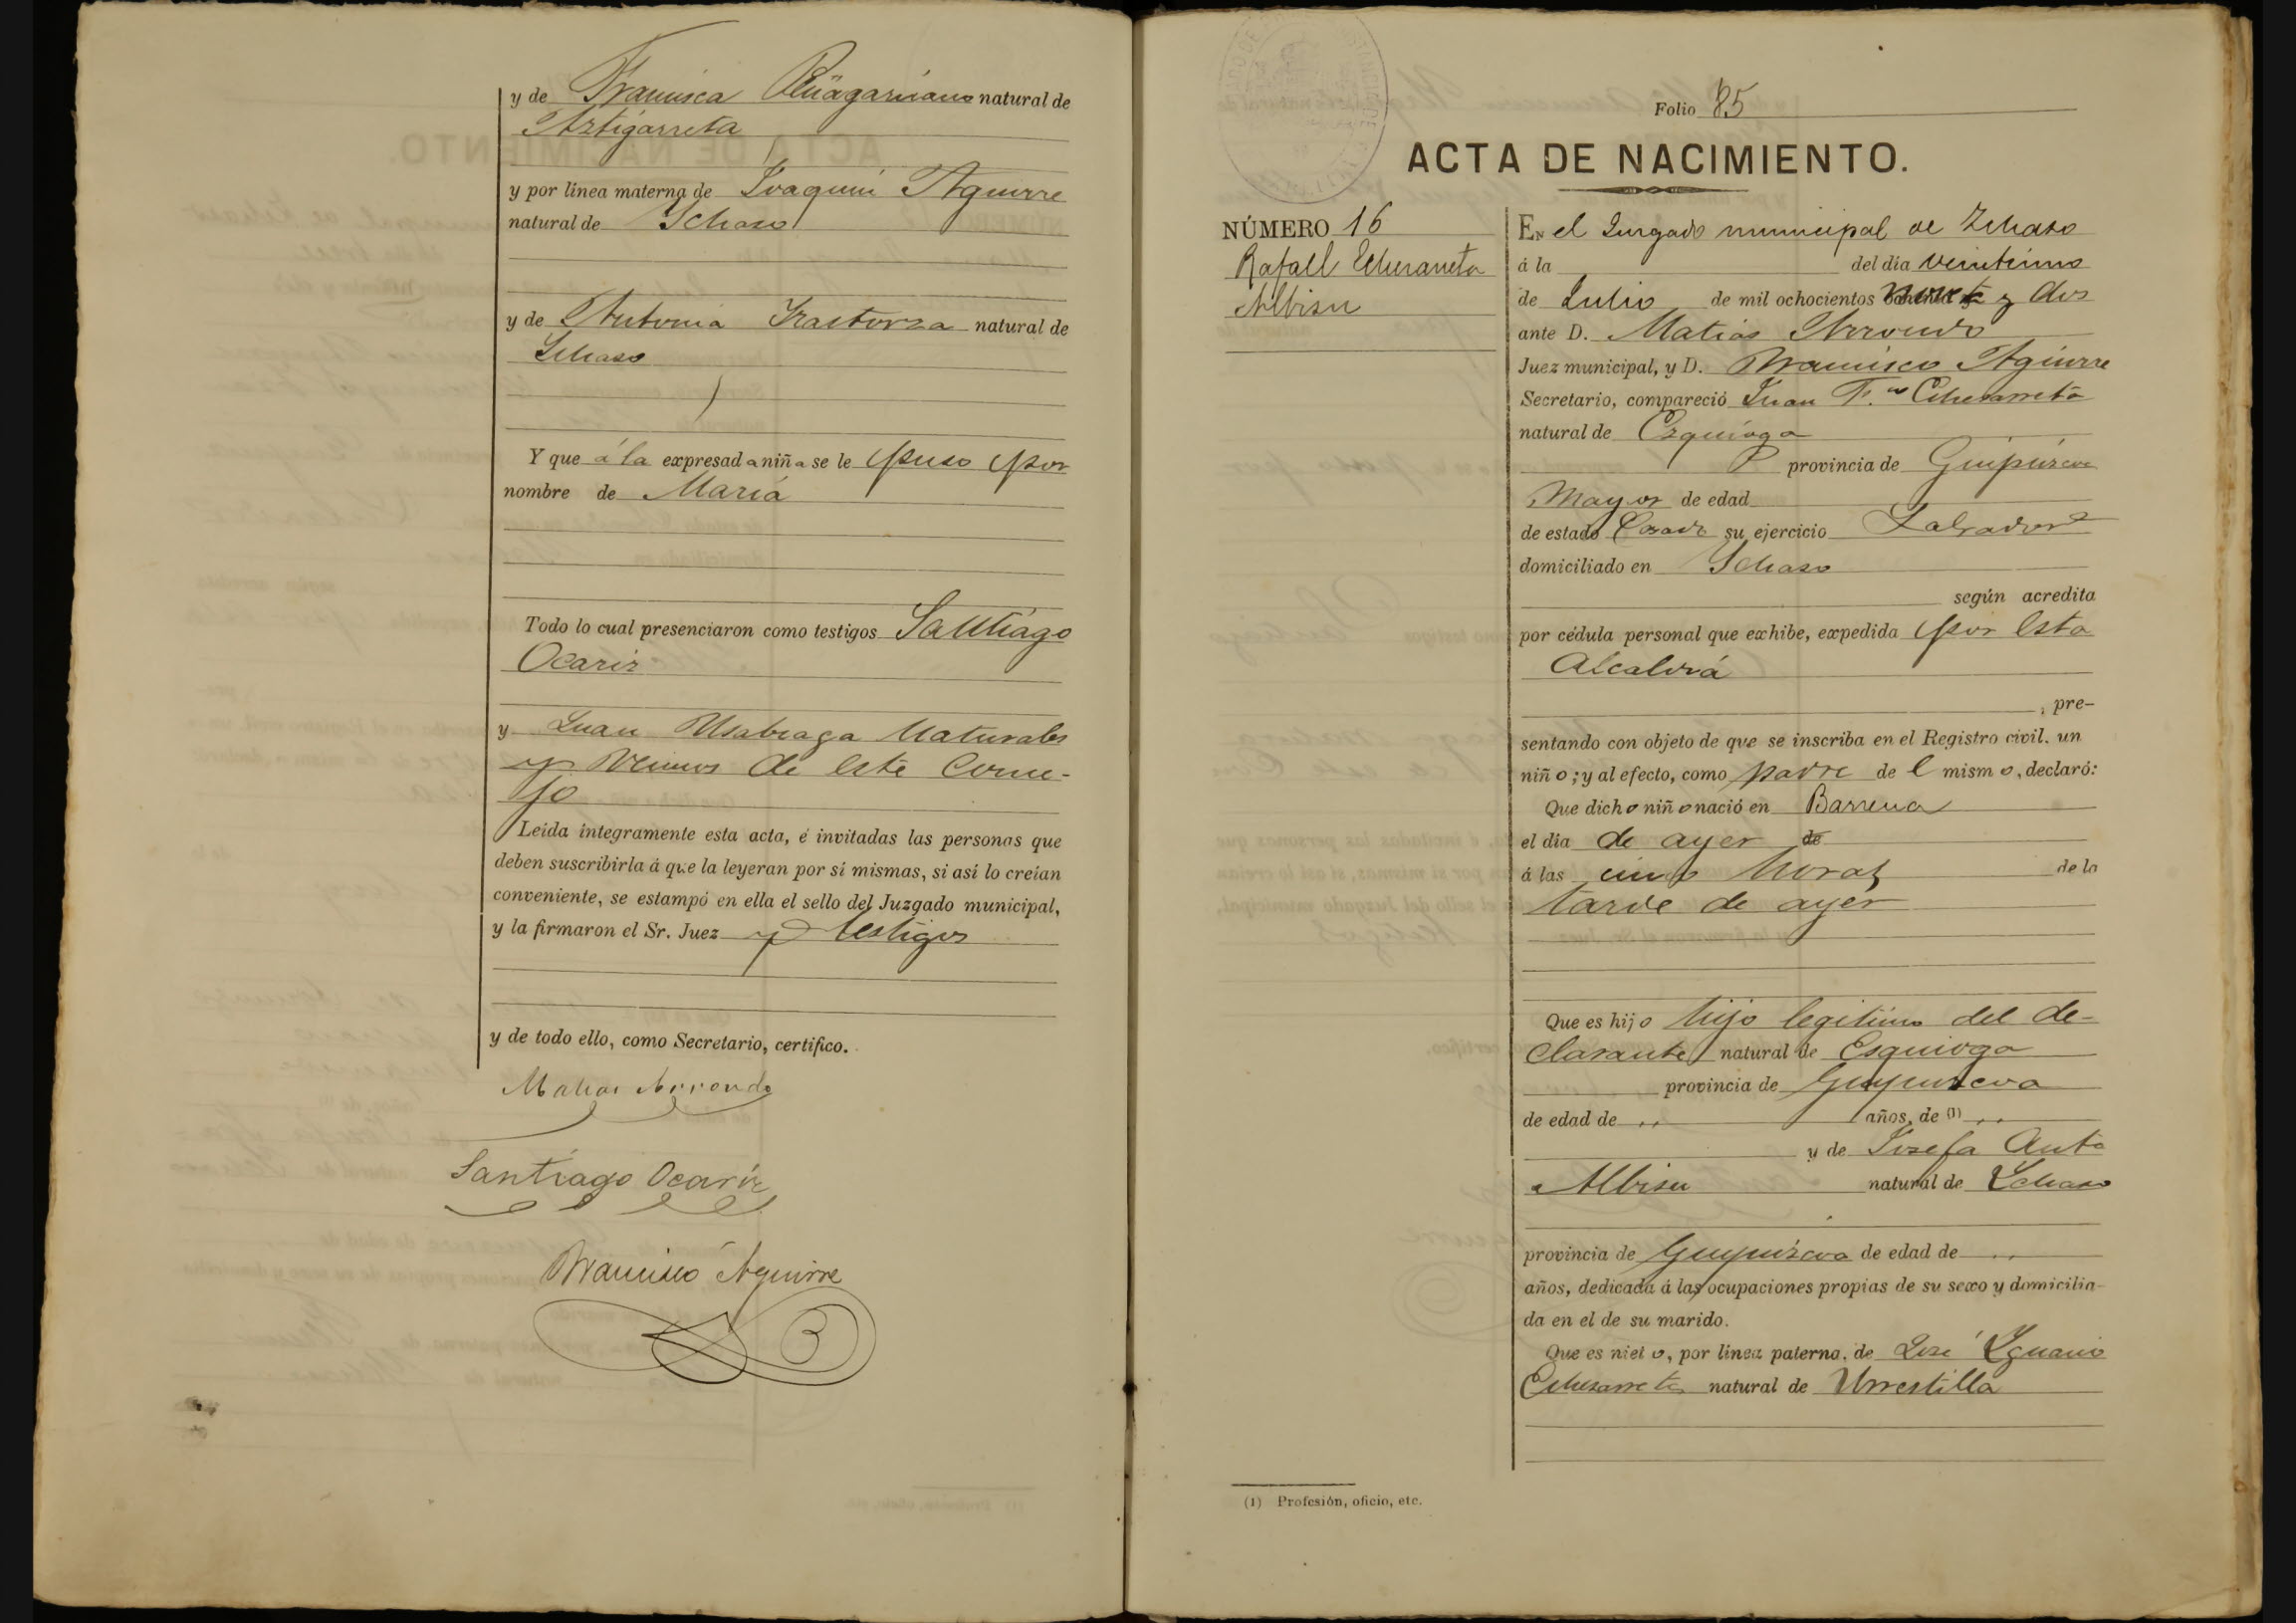 y de Francisca Reñagaricano natural de
Astigarreta
y por línea materna de Joaquin Aguirre
natural de Ichaso
y de Antonia Irastorza natural de
Ichaso
Y que á la expresada niña se le puso por
nombre de María
Todo lo cual presenciaron como testigos Santiago
Ocariz
y Juan Usabiaga naturales
y vecinos de este Conce-
jo
Leida íntegramente esta acta, é invitadas las personas que
deben suscribirla á que la leyeran por sí mismas, si así lo creían
conveniente, se estampó en ella el sello del Juzgado municipal,
y la firmaron el Sr. Juez y testigos
y de todo ello, como Secretario, certifico.
Matias Arrondo
Santiago Ocariz
Francisco Aguirre
Folio 85
ACTA DE NACIMIENTO.
NÚMERO 16
Rafael Echezarreta
Albisu
En el Juzgado municipal de Ichaso
á la del día veintiuno
de Julio de mil ochocientos noventa y dos
ante D. Matias Arrondo
Juez municipal, y D. Francisco Aguirre
Secretario, compareció Juan F.co Echezarreta
natural de Ezquioga
provincia de Guipúzcoa
mayor de edad
de estado Casado su ejercicio Labrador
domiciliado en Ichaso
según acredita
por cédula personal que exhibe, expedida por esta
Alcaldiá
, pre-
sentando con objeto de que se inscriba en el Registro civil, un
niño; y al efecto, como padre del mismo, declaró:
Que dicho niño nació en Barrena
el día de ayer de
á las cinco horas de la
tarde de ayer
Que es hijo hijo legitimo del de-
clarante natural de Esquioga
provincia de Guipuzcoa
de edad de ,, años, de (1) ,,
y de Josefa Anta
Albisu natural de Ichaso
provincia de Guipúzcoa de edad de ,,
años, dedicada á las ocupaciones propias de su sexo y domicilia-
da en el de su marido.
Que es nieto, por línea paterna, de José Ygnacio
Echezarreta natural de Urrestilla
(1) Profesión, oficio, etc.